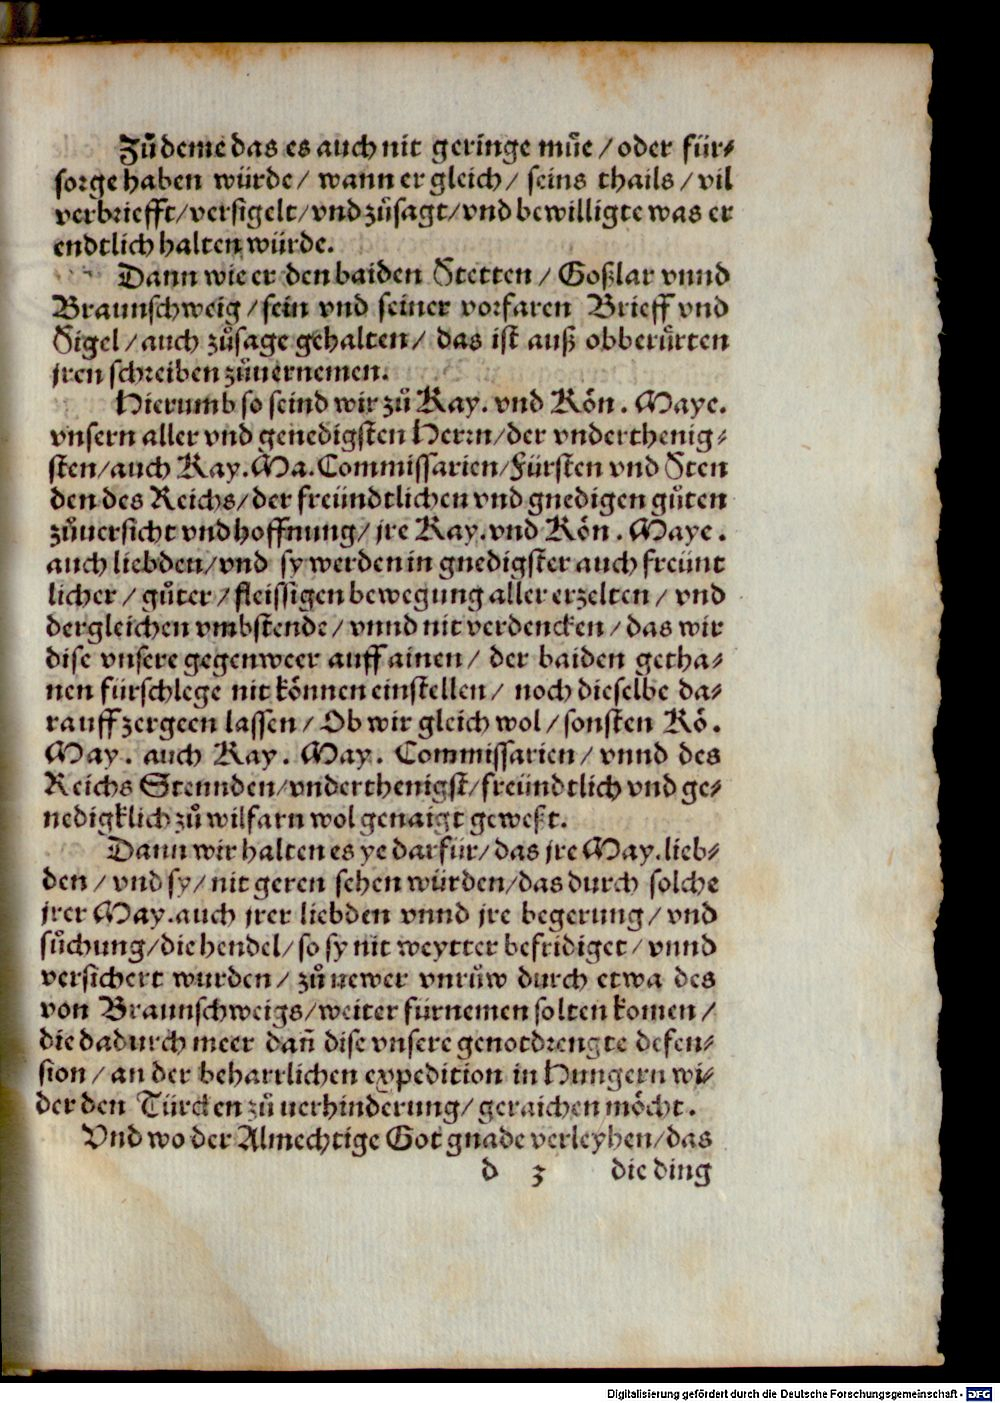 Zů deme das es auch nit geringe můe / oder für-
sorge haben würde / wann er gleich / seins thails / vil
verbriefft / versigelt / vnd zůsagt / vnd bewilligte was er
endtlich halten würde.
Dann wie er den baiden Stetten / Goßlar vnnd
Braunschweig / sein vnd seiner vorfaren Brieff vnd
Sigel / auch zůsage gehalten / das ist auß obberůrten
jren schreiben zůuernemen.
Hierumb so seind wir zů Kay. vnd Kön. Maye.
vnsern aller vnd genedigsten Herrn / der vnderthenig-
sten / auch Kay. Ma. Commissarien / Fürsten vnd Sten
den des Reichs / der freündtlichen vnd gnedigen gůten
zůuersicht vnd hoffnung / jre Kay. vnd Kön. Maye.
auch liebden / vnd sy werden in gnedigster auch freünt
licher / gůter / fleissigen bewegung aller erzelten / vnd
dergleichen vmbstende / vnnd nit verdencken / das wir
dise vnsere gegenweer auff ainen / der baiden getha-
nen fürschlege nit können einstellen / noch dieselbe da-
rauff zergeen lassen / Ob wir gleich wol / sonsten Kö.
May. auch Kay. May. Commissarien / vnnd des
Reichs Stennden / vnderthenigst / freündtlich vnd ge-
nedigklich zů wilfarn wol genaigt geweßt.
Dann wir halten es ye darfür / das jre May. lieb-
den / vnd sy / nit geren sehen würden / das durch solche
jrer May. auch jrer liebden vnnd jre begerung / vnd
sůchung / die hendel / so sy nit weytter befridiget / vnnd
versichert wurden / zů newer vnrůw durch etwa des
von Braunschweigs / weiter fürnemen solten komen /
die dadurch meer dañ dise vnsere genotdrengte defen-
sion / an der beharrlichen expedition in Hungern wi-
der den Türcken zů uerhinderung / geraichen möcht.
Vnd wo der Almechtige Got gnade verleyhen / das
d 3 die ding
Digitalisierung gefördert durch die Deutsche Forschungsgemeinschaft - DFG